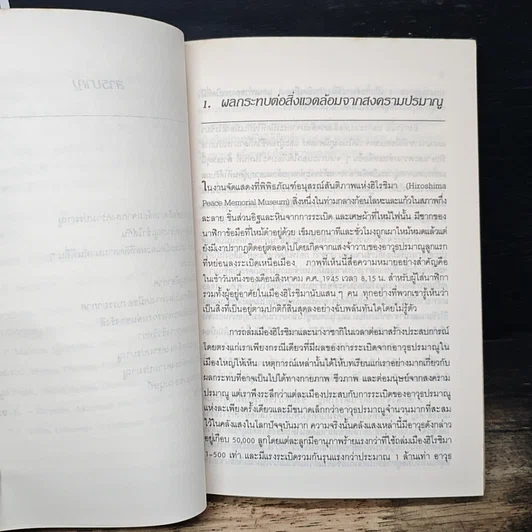 สารบาญ
1. ผลกระทบต่อสิ่งแวดล้อมจากสงครามปรมาณู
ในงานจัดแสดงที่พิพิธภัณฑ์อนุสรณ์สันติภาพแห่งฮิโรชิมา (Hiroshima
Peace Memorial Museum) สิ่งหนึ่งในท่ามกลางก้อนโลหะและแก้วในสภาพกึ่ง
ละลาย ชิ้นส่วนอิฐและหินจากการระเบิด และเศษผ้าที่ไหม้ไฟนั้น มีซากของ
นาฬิกาข้อมือที่ไหม้ดำอยู่ด้วย เข็มบอกนาทีและชั่วโมงถูกเผาไหม้หมดแล้วแต่
ยังมีเงาปรากฏติดอยู่ตลอดไปโดยเกิดจากแสงจ้าวาบของอาวุธปรมาณูลูกแรก
ที่หย่อนลงระเบิดเหนือเมือง ภาพที่เห็นนี้สื่อความหมายอย่างสำคัญคือ
ในเช้าวันหนึ่งของเดือนสิงหาคม ค.ศ. 1945 เวลา 8.15 น. สำหรับผู้ใส่นาฬิกา
รวมทั้งผู้อยู่อาศัยในเมืองฮิโรชิมานับแสน ๆ คน ทุกอย่างที่พวกเขารู้เห็นว่า
เป็นสิ่งที่เป็นอยู่ตามปกติก็สิ้นสุดลงอย่างฉับพลันทันใดโดยไม่รู้ตัว
การถล่มเมืองฮิโรชิมาและนางาซากิในเวลาต่อมาสร้างประสบการณ์
โดยตรงแก่เราเพียงกรณีเดียวที่มีผลของการระเบิดจากอาวุธปรมาณูใน
เมืองใหญ่ให้เห็น เหตุการณ์เหล่านั้นได้ให้บทเรียนแก่เราอย่างมากเกี่ยวกับ
ผลกระทบที่อาจเป็นไปได้ทางกายภาพ ชีวภาพ และต่อมนุษย์จากสงคราม
ปรมาณู แต่เราพึงระลึกว่าแต่ละเมืองประสบกับการระเบิดของอาวุธปรมาณู
แห่งละเพียงครั้งเดียวและมีขนาดเล็กกว่าอาวุธปรมาณูจำนวนมากที่สะสม
ไว้ในคลังแสงในโลกปัจจุบันมาก ความจริงนั้นคลังแสงเหล่านี้มีอาวุธดังกล่าว
อยู่เกือบ 50,000 ลูกโดยแต่ละลูกมีอานุภาพร้ายแรงกว่าที่ใช้ถล่มเมืองฮิโรชิมา
1-500 เท่า และมีแรงระเบิดรวมกันรุนแรงกว่าประมาณ 1 ล้านเท่า อาวุธ